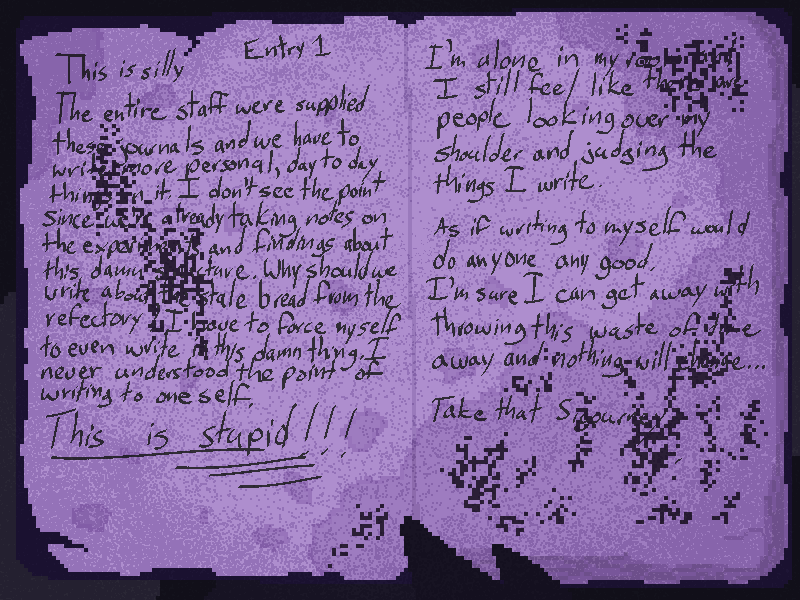 Entry 1
This is silly
The entire staff were supplied
these journals and we have to
write more personal, day to day
things in it. I don't see the point
Since we're already taking notes on
the experiments and findings about
this damn structure. Why should we
write about the stale bread from the
refectory? I have to force myself
to even write in this damn thing. I
never understood the point of
writing to oneself.
This is stupid!!!!
I'm alone in my room but
I still feel like there are
people looking over my
shoulder and judging the
things I write.
As if writing to myself would
do anyone any good.
I'm sure I can get away with
throwing this waste of time
away and nothing will change...
Take that